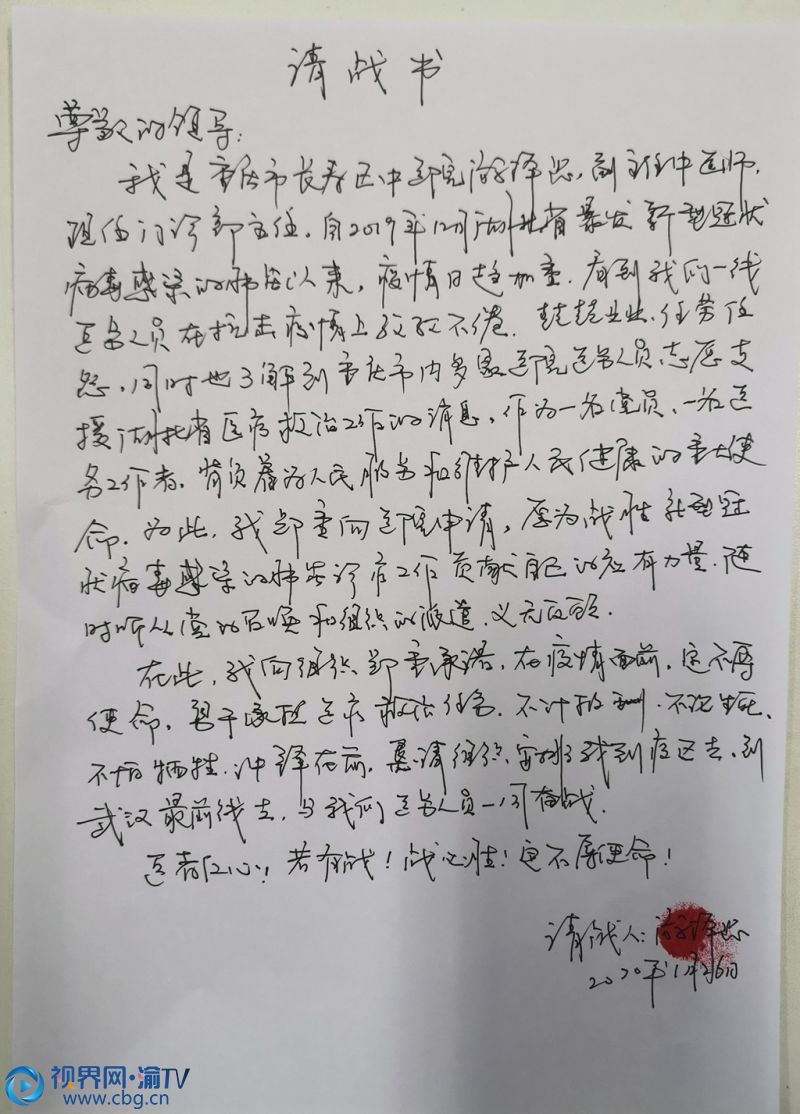 请战书
尊敬的领导：
我是重庆市长寿区中医院游泽忠，副主任中医师，
现任门诊部主任，自2019年12月湖北省暴发新型冠状
病毒感染的肺炎以来，疫情日趋加重，看到我们一线
医务人员在抗击疫情上孜孜不倦，兢兢业业，任劳任
怨，同时也了解到重庆市内多家医院医务人员志愿支
援湖北省医疗救治工作的消息，作为一名党员、一名医
务工作者，背负着为人民服务和维护人民健康的重大使
命，为此，我郑重向医院申请，愿为战胜新型冠
状病毒感染的肺炎诊疗工作贡献自己的应有力量，随
时听从党的召唤和组织的派遣，义无反顾。
在此，我向组织郑重承诺，在疫情面前，定不辱
使命，勇于承担医疗救治任务，不计报酬，不论生死，
不怕牺牲，冲锋在前，恳请组织安排我到疫区去，到
武汉最前线去，与我们医务人员一同奋战。
医者仁心！若有战！战必胜！定不辱使命！
请战人：游泽忠
2020年1月26日
视界网·渝TV
www.cbg.cn